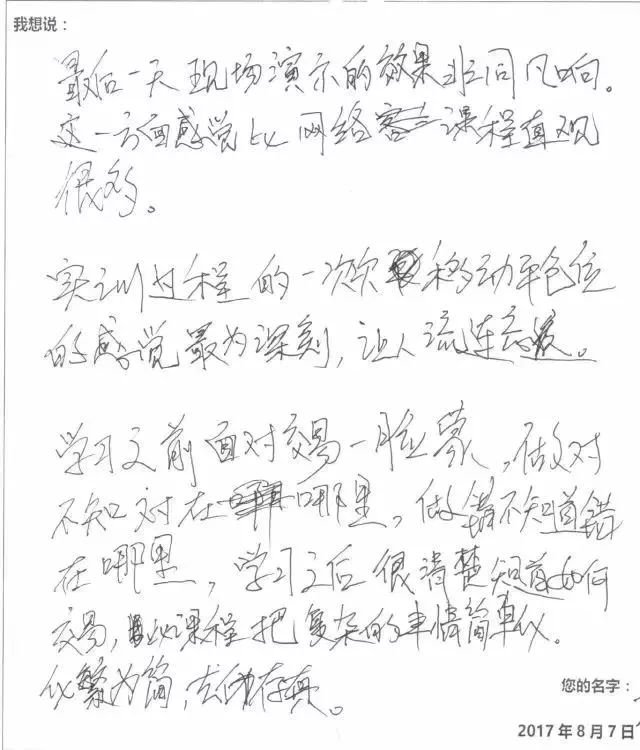 我想说：
最后一天现场演示的效果非同凡响。
这一方面感觉比网络课程直观
很多。
实训过程的一次次移动平仓位
的感觉最为深刻，让人流连忘返。
学习之前面对交易一脸蒙，做对
不知对在哪里，做错不知道错
在哪里，学习之后很清楚知道如何
交易，此课程把复杂的事情简单化。
化繁为简，去伪存真。
您的名字：
2017年8月7日